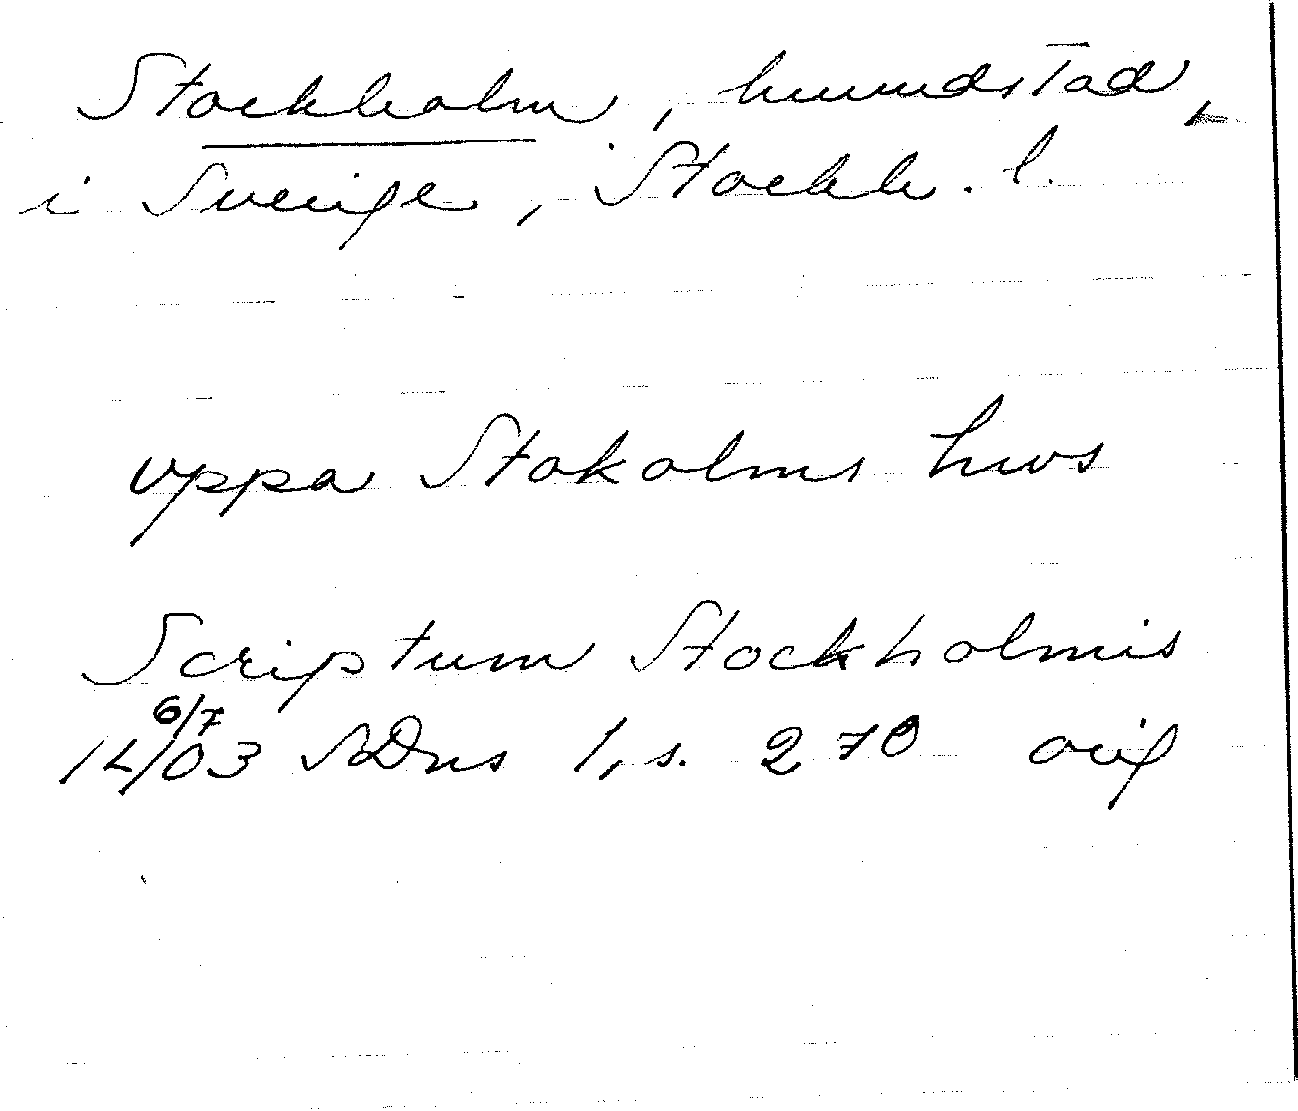 Stockholm, huvudstad,
i Sverige, Stockh. l.
vppa Stokolms hws
Scriptum Stockholmis
6/7
14/03 SDns 1, s. 270 orig